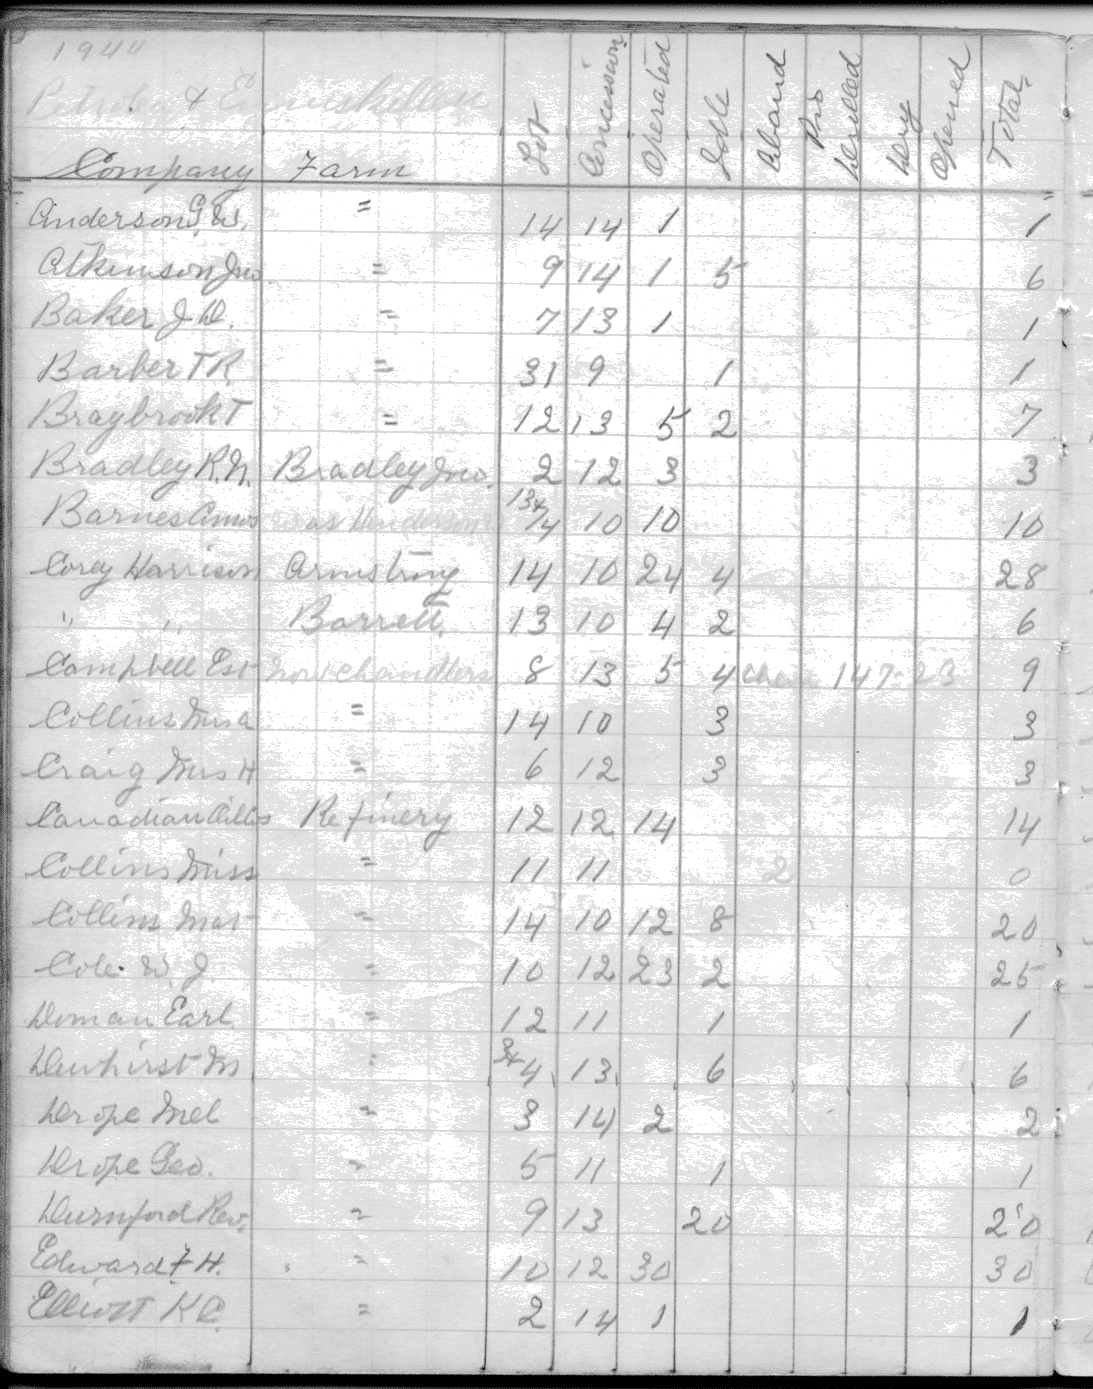 1944
Petrolea & Enniskillen
Company Farm Lot Concession Operated Idle Aband Pro Drilled Dry Opened Total
Anderson G.W. " 14 14 1 1
Atkinson Jno. " 9 14 1 5 6
Baker J D. " 7 13 1 1
Barber T R. " 31 9 1 1
Braybrook T " 12 13 5 2 7
Bradley R.N. Bradley Jno. 2 12 3 3
Barnes Amos was Henderson 13 + 14 10 10 10
Corey Harrison Armstrong 14 10 24 4 28
" " Barrett 13 10 4 2 6
Campbell Est now Chandlers 8 13 5 4 147-23 9
Collins Miss A " 14 10 3 3
Craig Mrs H " 6 12 3 3
Canadian Oil Co Refinery 12 12 14 14
Collins Miss " 11 11 2 0
Collins Mat " 14 10 12 8 20
Cole W. J. " 10 12 23 2 25
Doman Earl " 12 11 1 1
Dewhirst Wm " 3+4 13 6 6
Drope Mel " 3 14 2 2
Drope Geo. " 5 11 1 1
Durnford Rev. " 9 13 20 20
Edward F H. " 10 12 30 30
Elliott K C. " 2 14 1 1